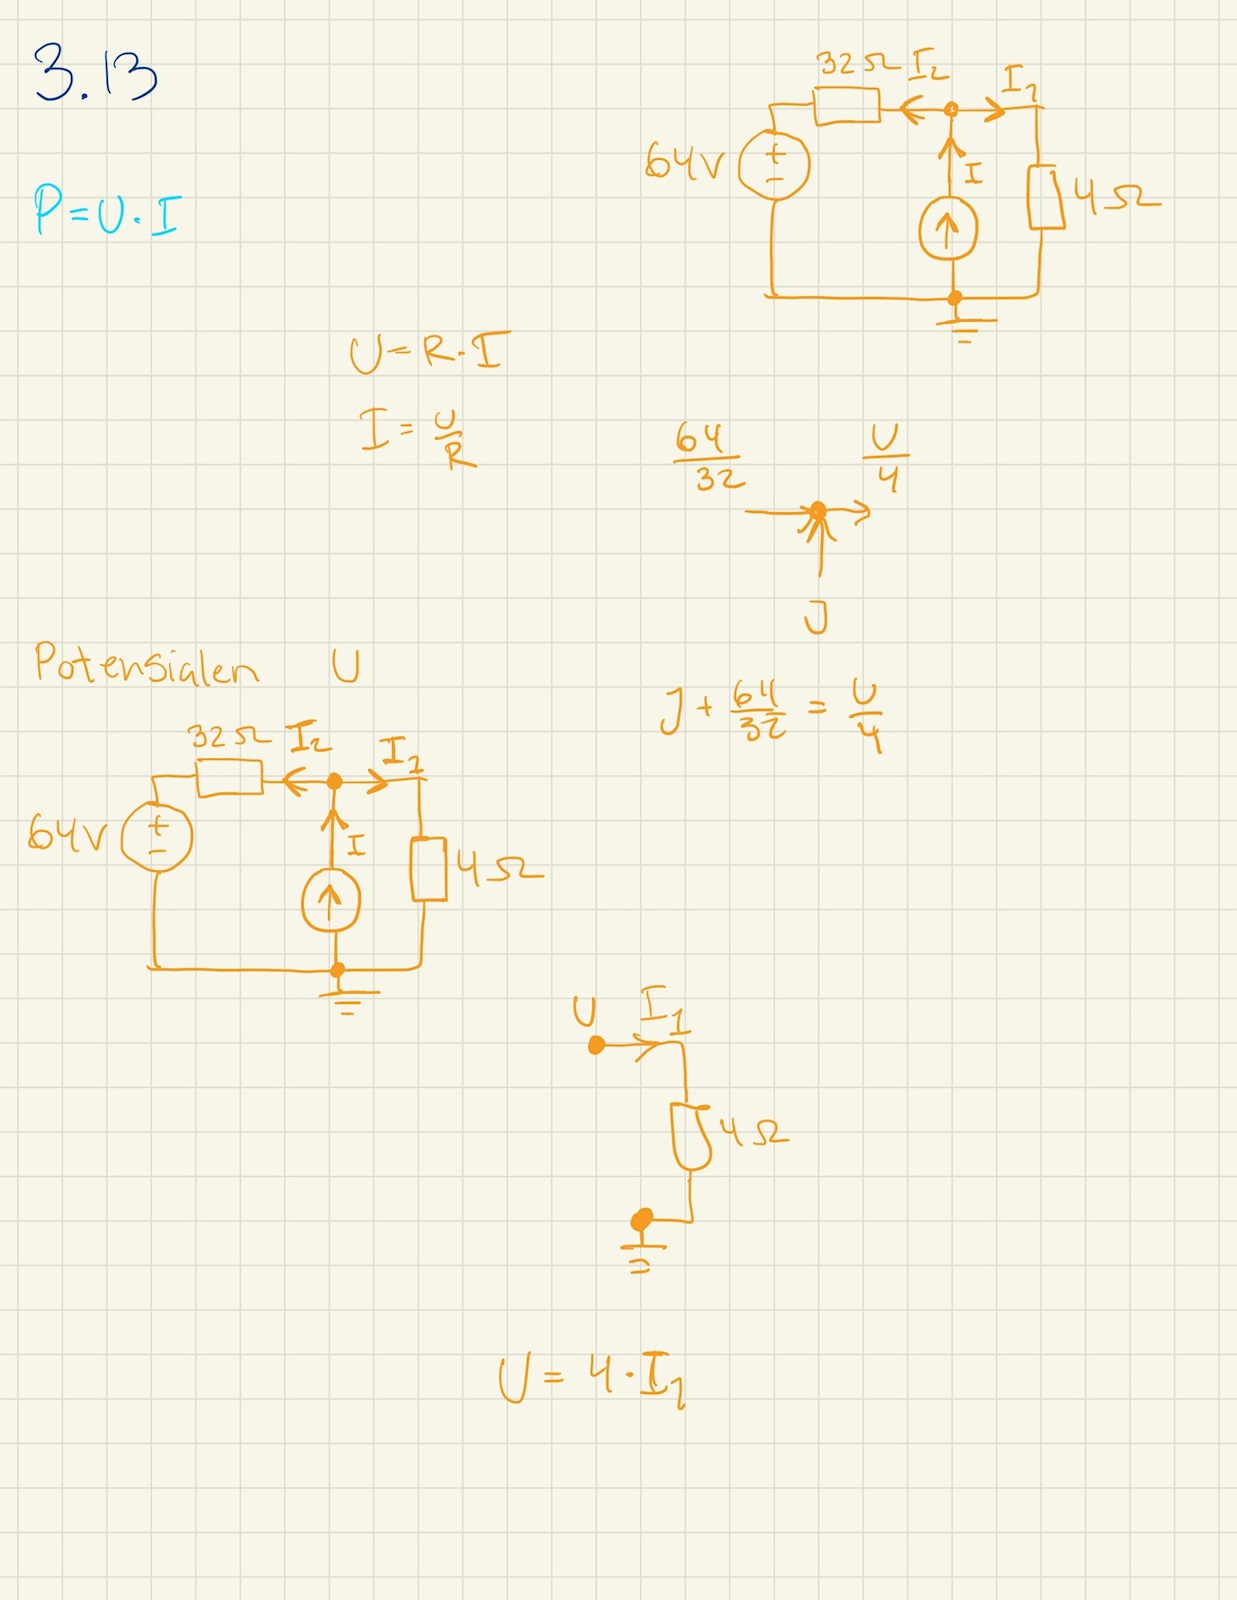 3.13
32Ω I₂ I₁
64V I 4Ω
P=U·I
U=R·I
I=U/R
64/32 U/4
J
Potensialen U
J+64/32=U/4
32Ω I₂ I₁
64V I 4Ω
U I₁
4Ω
U=4·I₁